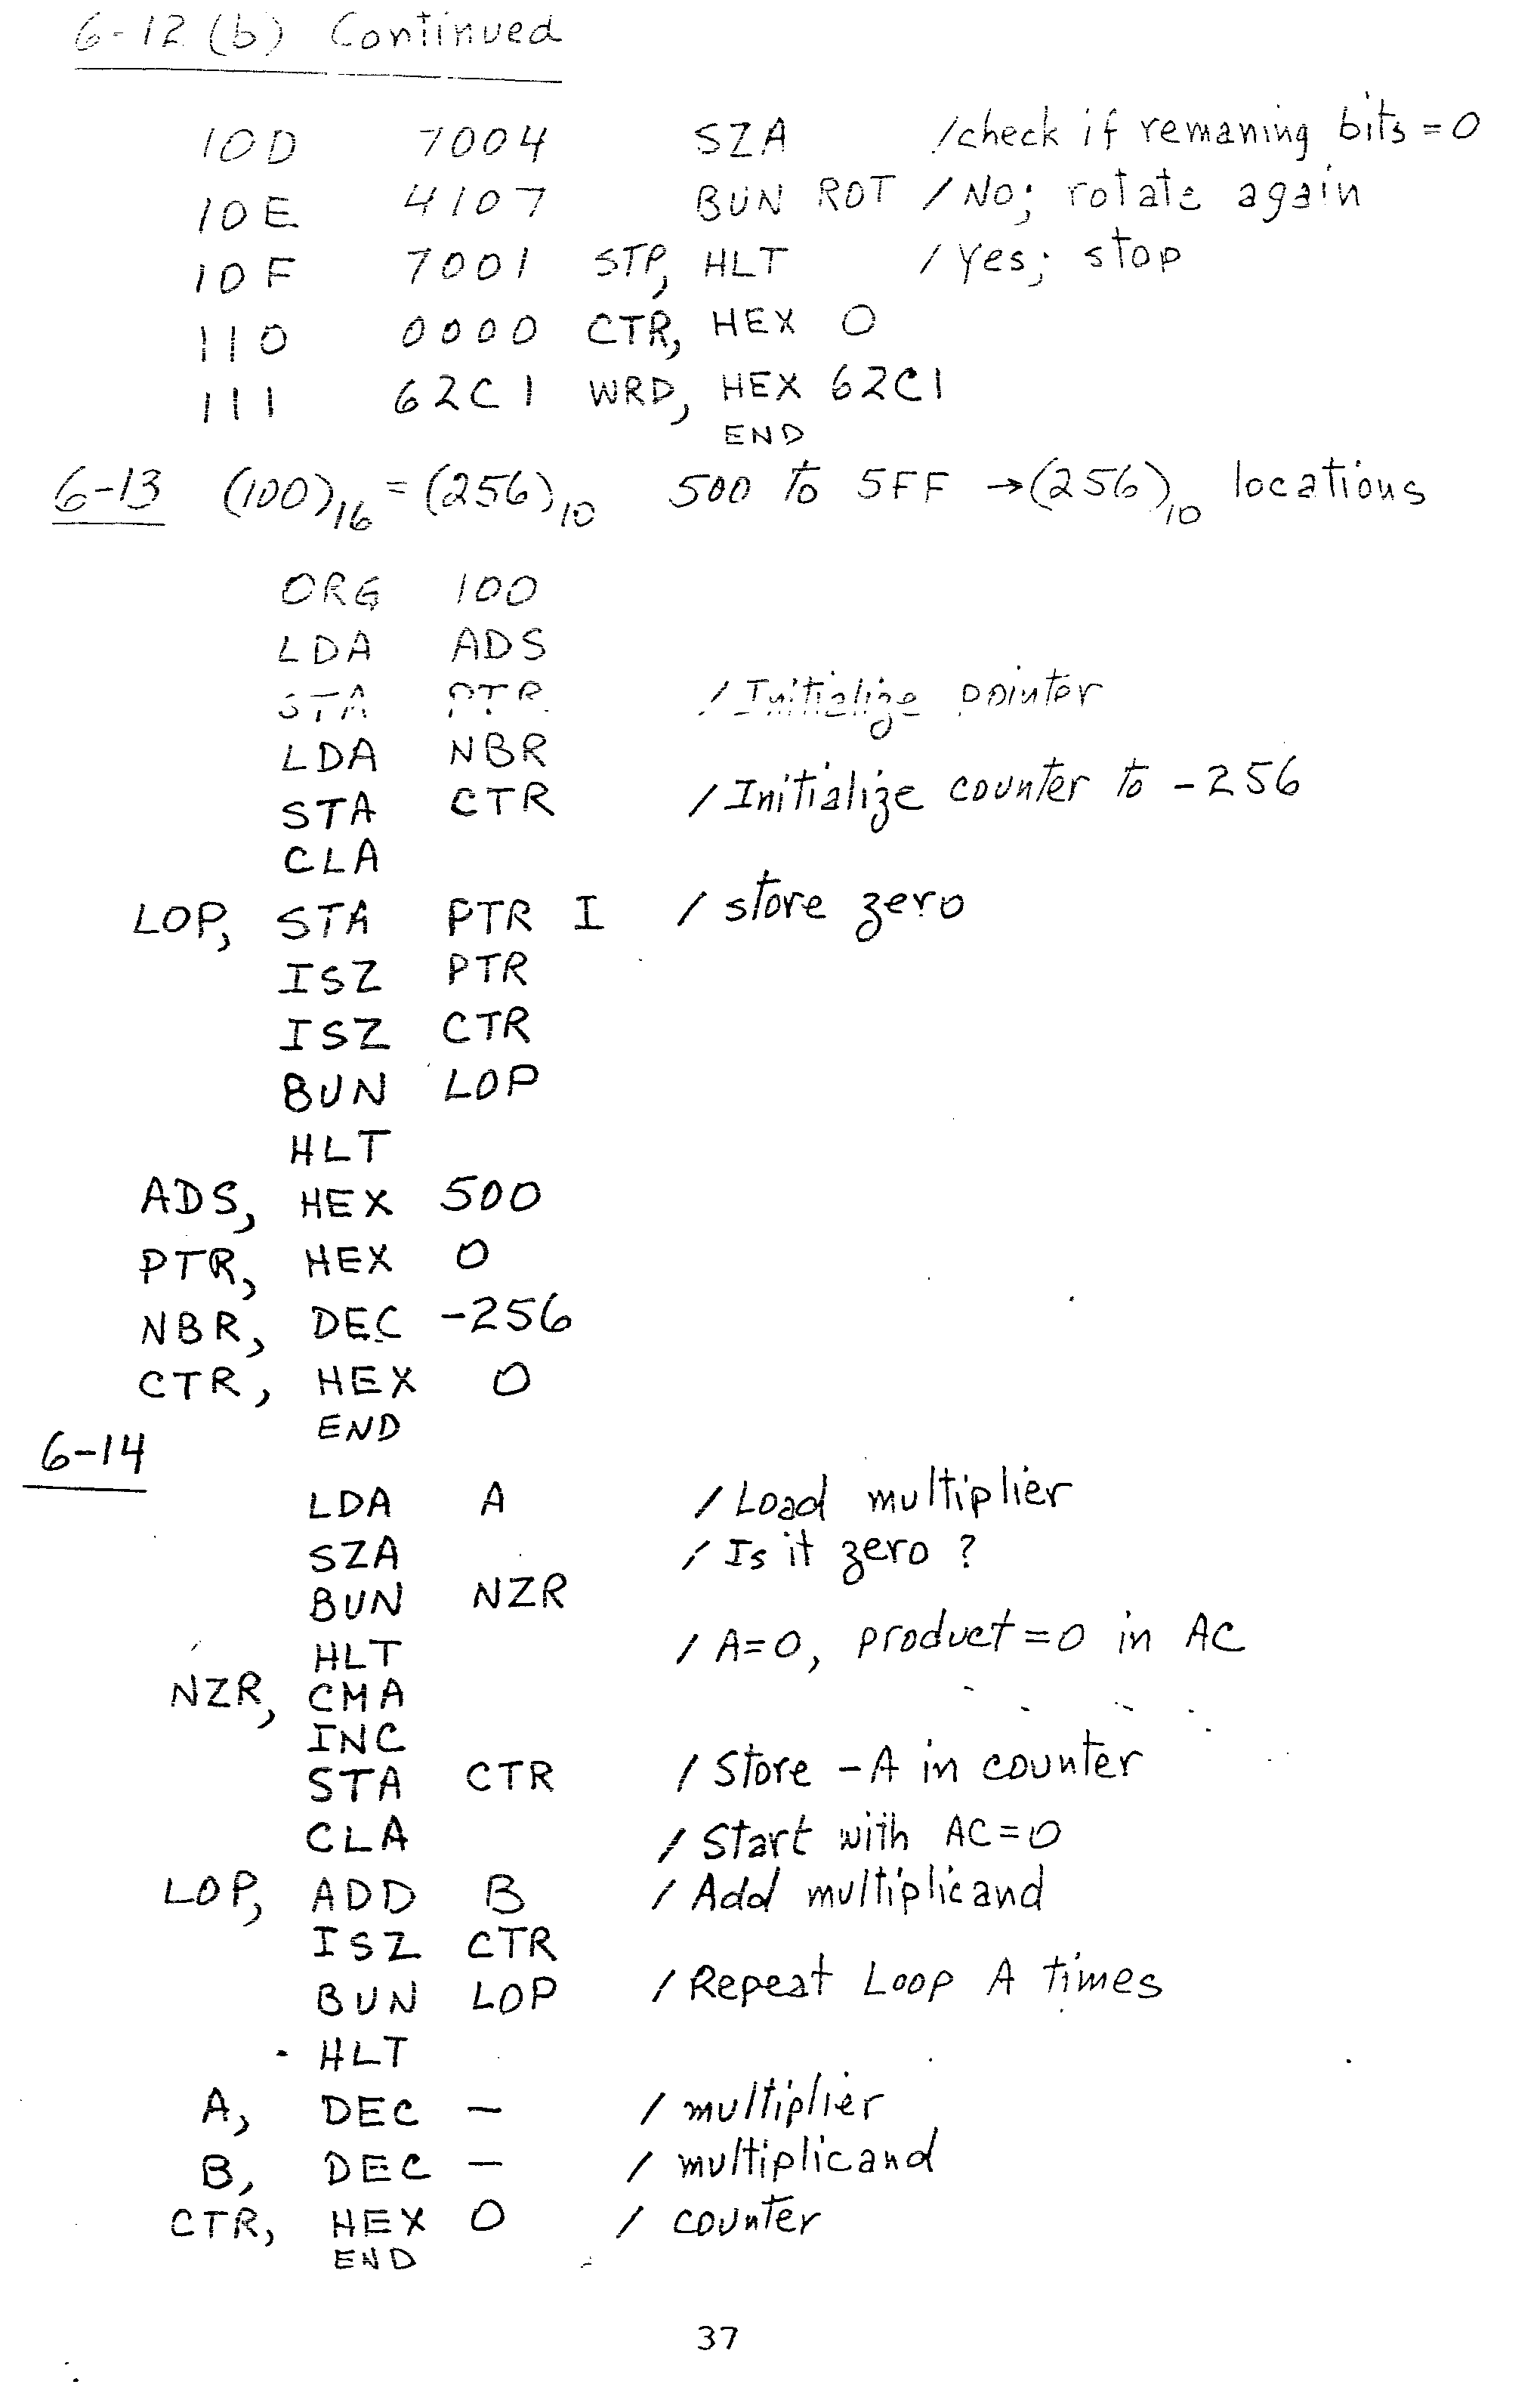 6-12 (b) Continued
10D 7004 SZA /check if remaning bits = 0
10E 4107 BUN ROT / No; rotate again
10F 7001 STP, HLT / Yes; stop
110 0000 CTR, HEX 0
111 62C1 WRD, HEX 62C1
END
6-13 (100)16 = (256)10 500 to 5FF → (256)10 locations
ORG 100
LDA ADS
STA PTR / Initialize pointer
LDA NBR
STA CTR / Initialize counter to -256
CLA
LOP, STA PTR I / store zero
ISZ PTR
ISZ CTR
BUN LOP
HLT
ADS, HEX 500
PTR, HEX 0
NBR, DEC -256
CTR, HEX 0
END
6-14
LDA A / Load multiplier
SZA / Is it zero ?
BUN NZR
HLT / A=0, product=0 in AC
NZR, CMA
INC
STA CTR / Store -A in counter
CLA / Start with AC=0
LOP, ADD B / Add multiplicand
ISZ CTR
BUN LOP / Repeat Loop A times
HLT
A, DEC - / multiplier
B, DEC - / multiplicand
CTR, HEX 0 / counter
END
37